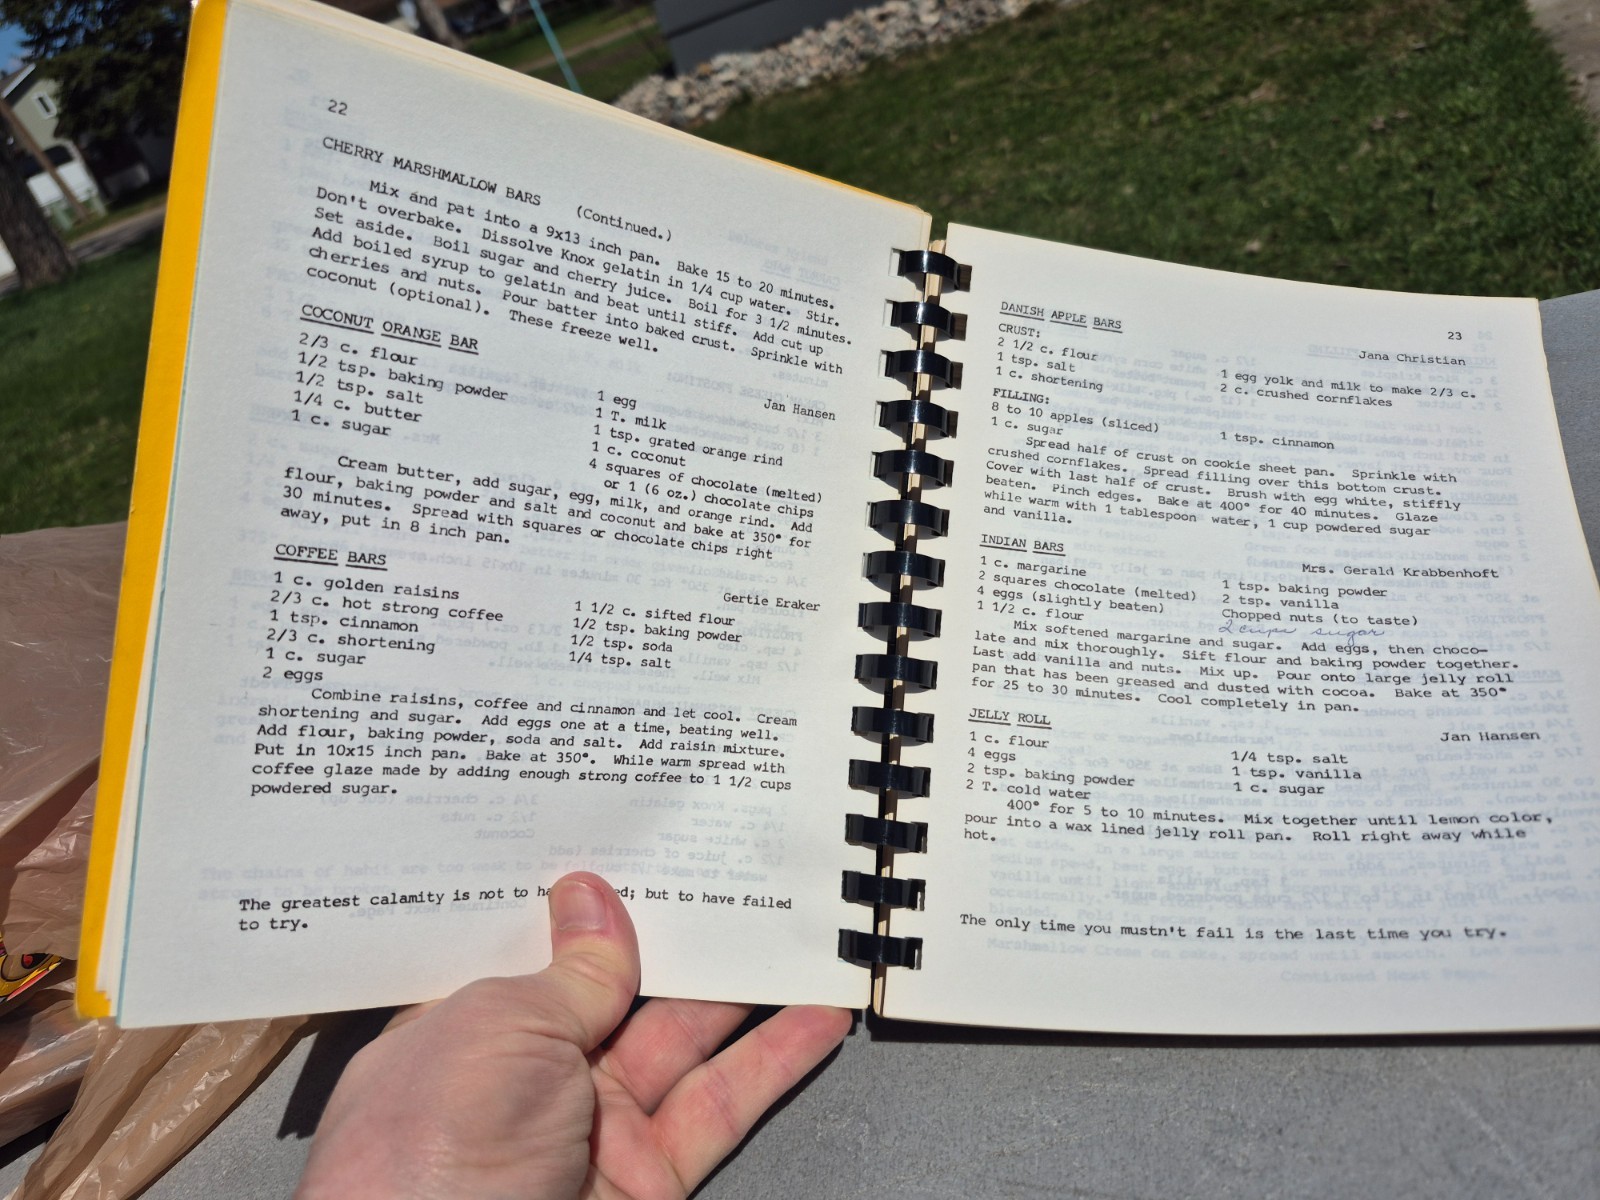 22
CHERRY MARSHMALLOW BARS (Continued.)
Mix and pat into a 9x13 inch pan. Bake 15 to 20 minutes.
Don't overbake. Dissolve Knox gelatin in 1/4 cup water. Stir.
Set aside. Boil sugar and cherry juice. Boil for 3 1/2 minutes.
Add boiled syrup to gelatin and beat until stiff. Add cut up
cherries and nuts. Pour batter into baked crust. Sprinkle with
coconut (optional). These freeze well.
COCONUT ORANGE BAR
Jan Hansen
2/3 c. flour
1/2 tsp. baking powder
1/2 tsp. salt
1/4 c. butter
1 c. sugar
1 egg
1 T. milk
1 tsp. grated orange rind
1 c. coconut
4 squares of chocolate (melted)
or 1 (6 oz.) chocolate chips
Cream butter, add sugar, egg, milk, and orange rind. Add
flour, baking powder and salt and coconut and bake at 350° for
30 minutes. Spread with squares or chocolate chips right
away, put in 8 inch pan.
COFFEE BARS
Gertie Eraker
1 c. golden raisins
2/3 c. hot strong coffee
1 tsp. cinnamon
2/3 c. shortening
1 c. sugar
2 eggs
1 1/2 c. sifted flour
1/2 tsp. baking powder
1/2 tsp. soda
1/4 tsp. salt
Combine raisins, coffee and cinnamon and let cool. Cream
shortening and sugar. Add eggs one at a time, beating well.
Add flour, baking powder, soda and salt. Add raisin mixture.
Put in 10x15 inch pan. Bake at 350°. While warm spread with
coffee glaze made by adding enough strong coffee to 1 1/2 cups
powdered sugar.
The greatest calamity is not to ha ed; but to have failed
to try.
23
DANISH APPLE BARS
Jana Christian
CRUST:
2 1/2 c. flour
1 tsp. salt
1 c. shortening
1 egg yolk and milk to make 2/3 c.
2 c. crushed cornflakes
FILLING:
8 to 10 apples (sliced)
1 c. sugar
1 tsp. cinnamon
Spread half of crust on cookie sheet pan. Sprinkle with
crushed cornflakes. Spread filling over this bottom crust.
Cover with last half of crust. Brush with egg white, stiffly
beaten. Pinch edges. Bake at 400° for 40 minutes. Glaze
while warm with 1 tablespoon water, 1 cup powdered sugar
and vanilla.
INDIAN BARS
Mrs. Gerald Krabbenhoft
1 c. margarine
2 squares chocolate (melted)
4 eggs (slightly beaten)
1 1/2 c. flour
1 tsp. baking powder
2 tsp. vanilla
Chopped nuts (to taste)
2 cups sugar
Mix softened margarine and sugar. Add eggs, then choco-
late and mix thoroughly. Sift flour and baking powder together.
Last add vanilla and nuts. Mix up. Pour onto large jelly roll
pan that has been greased and dusted with cocoa. Bake at 350°
for 25 to 30 minutes. Cool completely in pan.
JELLY ROLL
Jan Hansen
1 c. flour
4 eggs
2 tsp. baking powder
2 T. cold water
1/4 tsp. salt
1 tsp. vanilla
1 c. sugar
400° for 5 to 10 minutes. Mix together until lemon color,
pour into a wax lined jelly roll pan. Roll right away while
hot.
The only time you mustn't fail is the last time you try.